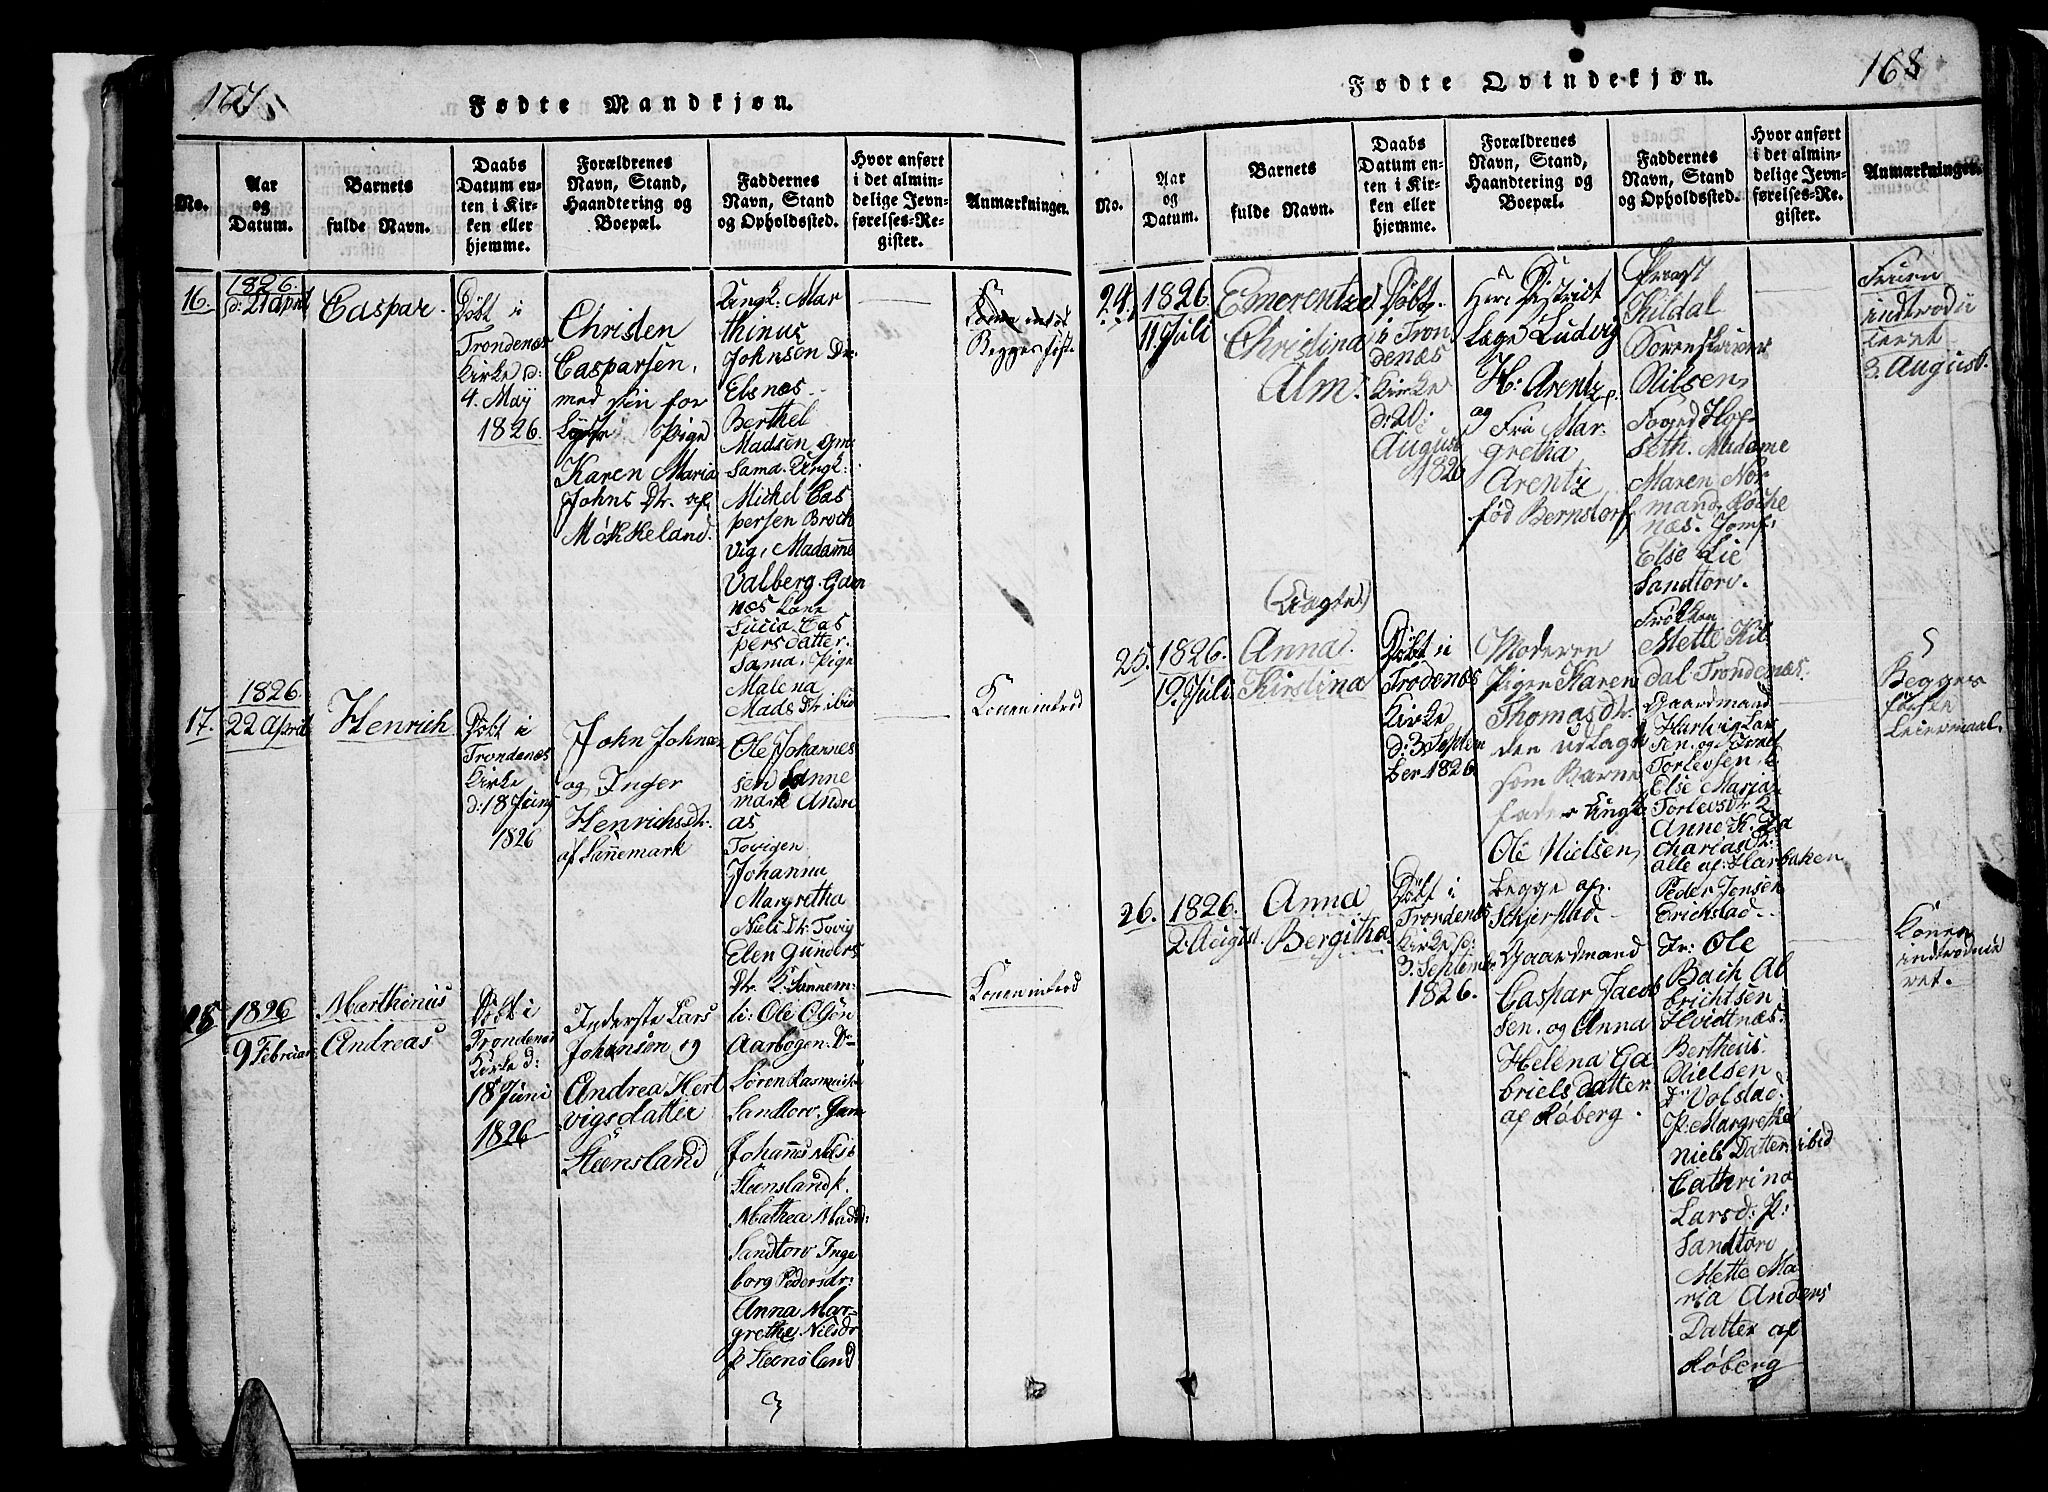 167
Fødte Mandkjøn.
No.
Aar
og
Datum.
Barnets
fulde Navn.
Daabs
Datum en-
ten i Kir-
ken eller
hjemme.
Forældrenes
Navn, Stand,
Haandtering og
Boepæl.
Faddernes
Navn, Stand
og Opholdssted.
Hvor anført
i det almin-
delige Jevn-
førelses-Re-
gister.
Anmærkninger.
16.
1826.
d: 21 april
Caspar.
Døbt i
Trondenæs
Kirke d:
4. May
1826.
Christen
Caspersen,
med sin for
Pige
Karen Maria
Johns Dtr. af
Møkkeland.
Ungk: Mar
thinus
Johnsen
Elsnæs
Berthel
Madsen,
Sama. Ungk:
Michel Cas
persen Brock
vig, Madame
Valberg. Gam
næs Kone
Lucia Cas
persdatter.
Sama. Pige
Malena
Mads Dtr ibid
Begges første
17.
1826.
22 April
Henrich
Døbt i
Trondenæs
Kirke
d: 18 Juny
1826
John Johnsen
og Inger
Henrichsdtr.
af Sannemark
Ole Johannes
sen Sanne
mark Andre
as
Tovigen
Johanna
Margretha
Niels Dtr. Tovig
Elen Gunders
Dtr. K. Sannem-
Konen introd
18
1826
9 Februar
Marthinus
Andreas
Døbt i
Trondenæs
Kirke d:
18 Juni
1826
Inderste Lars
Johansen og
Andrea Hert
vigsdatter
Steensland
ti: Ole O
Aarbogen.
Søren Rasmuss
Sandtorv. Gam
Johannes Nils
Steensland p.
Mathea Mads
Sandtorv Inge
borg Pedersdr:
Anna Mar-
grethe Nilsdr
p Steensland
Konen introd
168
Fødte Qvindekjøn.
No.
Aar
og
Datum.
Barnets
fulde Navn.
Daabs
Datum en-
ten i Kir-
ken eller
hjemme.
Forældrenes
Navn, Stand,
Haandtering og
Boepæl.
Faddernes
Navn, Stand
og Opholdssted.
Hvor anført
i det almin-
delige Jevn-
førelses-Re-
gister.
Anmærkninger.
24.
1826.
11 Juli
Emerentze
Christina
Alm.
Døbt
i Tron
denæs
Kirke
d: 20:
August
1826
Herr District
Læge Ludvig
H: Arentz
og Fru Mar
gretha
Arentz
fød Bernstorf
Provst
Kildal
Sorenskriver
Nilsen
Foged Hol-
seth. Madame
Maren Nor
mand. Roche
næs. Jomf:
Else Lie
Sandtorv.
Frøkken
Mette Kil
dal Trondenæs.
Fruen
indtrodu
ceret
August.
(Uægte)
25.
1826.
19. Juli
Anna
Kirstina
Døbt i
Trodenæs
Kirke
d: 3 Septem
ber 1826
Moderen
Pigen Karen
Thomasdtr.
den udlagte
som Barne
fader Ungk
Ole Nielsen,
begge af
Schjerstad.
Gaardmand
Hartvig Lar
sen. og Israel
Torlevsen,
Else Maria
Torlevsdtr
Anne K. Za
charias Dtr:
alle af: Harbaken
Begges
første
Leiermaal.
26.
1826.
2. August.
Anna
Bergitha
Døbt i
Trondenæs
Kirke d:
3. Septemb
1826.
Gaardmand
Caspar Jacob
sen, og Anna
Helena Ga
briels datter
af Røberg.
Peder Jensen
Erikstad.
Fr: Ole
Bach Al
brichtsen
Hvidtnæs.
Bertheus
Nielsen
Volstad.
P: Margrethe
Niels Datter ibid
Cathrina
Larsd: P:
Sandtorv
Mette Ma
ria Anders
Datter af
Røberg
Konen
indtrodu
ret.